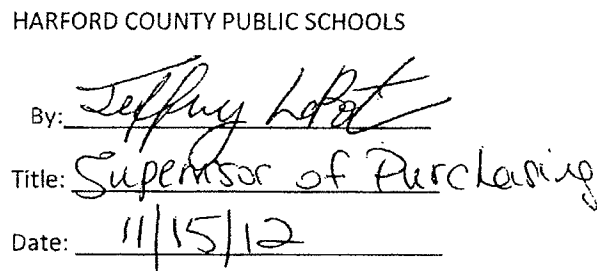 HARFORD COUNTY PUBLIC SCHOOLS
By: Jeffrey LaPorta
Title: Supervisor of Purchasing
Date: 11/15/12